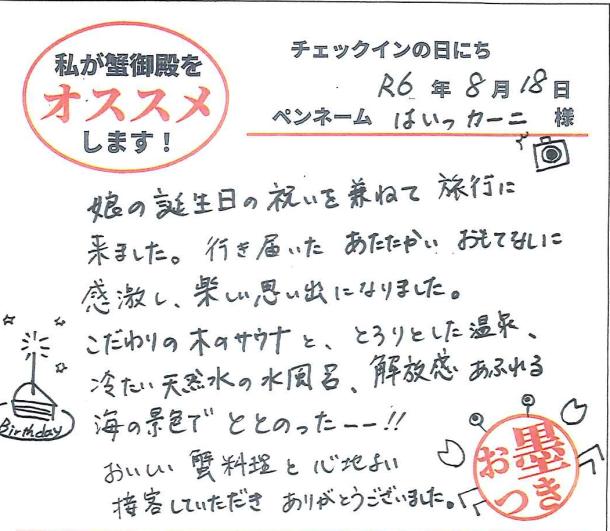 私が蟹御殿を
オススメ
します！
チェックインの日にち
R6 年 8 月 18 日
ペンネーム はいっカーニ 様
娘の誕生日の祝いを兼ねて 旅行に
来ました。行き届いた あたたかい おもてなしに
感激し、楽しい思い出になりました。
こだわりの木のサウナと、とろりとした温泉、
冷たい天然水の水風呂、解放感あふれる
海の景色で ととのったーー!!
おいしい 蟹料理と心地よい
接客していただき ありがとうございました。
Birthday
お墨つき